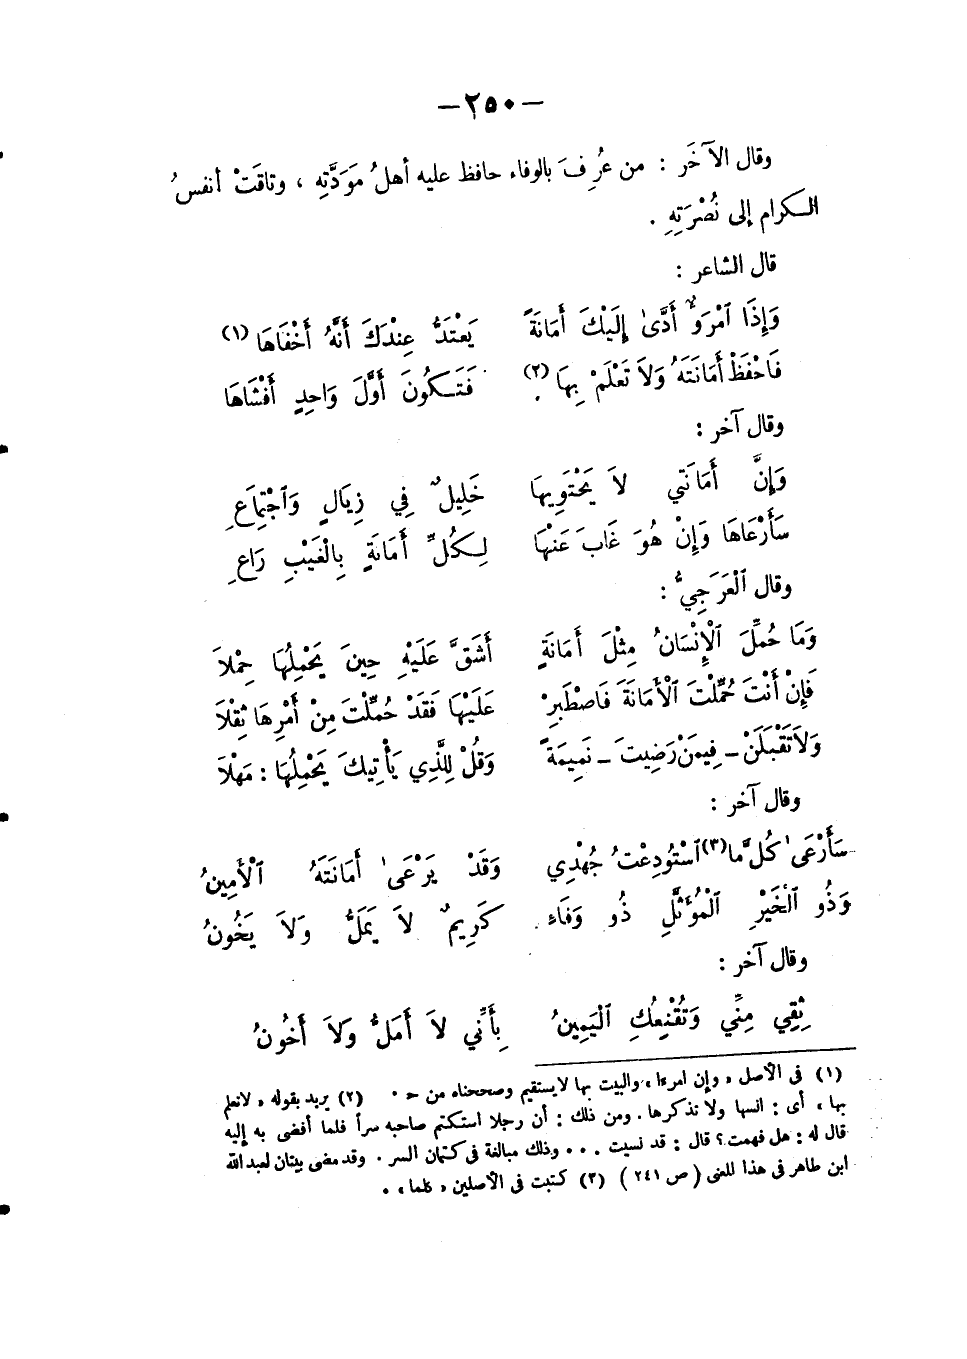 —٢٥٠—
وقال الآخَر : من عُرِفَ بالوفاء حافظ عليه أهلُ مَوَدَّتِهِ ، وتاقَتْ أنفسُ
الكرام إلى نُصْرَتِهِ .
قال الشاعر :
وَإِذَا ٱمْرَؤٌ أَدَّىٰ إِلَيْكَ أَمَانَةً يَعْتَدُّ عِنْدَكَ أَنَّهُ أَخْفَاهَا (١)
فَاحْفَظْ أَمَانَتَهُ وَلاَ تَعْلَمْ بِهَا (٢) فَتَكُونَ أَوَّلَ وَاحِدٍ أَفْشَاهَا
وقال آخر :
وَإِنَّ أَمَانَتي لاَ يَحْتَوِيهَا خَلِيلٌ فِي زِيَالٍ وَٱجْتِمَاعِ
سَأَرْعَاهَا وَإِنْ هُوَ غَابَ عَنْهَا لِكُلِّ أَمَانَةٍ بِالْغَيْبِ رَاعِ
وقال ٱلْعَرَجِيُّ :
وَمَا حُمِّلَ ٱلْإِنْسَانُ مِثْلَ أَمَانَةٍ أَشَقَّ عَلَيْهِ حِينَ يَحْمِلُهَا حِمْلاَ
فَإِنْ أَنْتَ حُمِّلْتَ ٱلْأَمَانَةَ فَاصْطَبِرْ عَلَيْهَا فَقَدْ حُمِّلْتَ مِنْ أَمْرِهَا ثِقْلاَ
وَلاَ تَقْبَلَنْ ــ فِيمَنْ رَضِيتَ ــ نَمِيمَةً وَقُلْ لِلَّذِي يَأْتِيكَ يَحْمِلُهَا : مَهْلاَ
وقال آخر :
سَأَرْعَىٰ كُلَّ مَا (٣) ٱسْتُودِعْتُ جُهْدِي وَقَدْ يَرْعَىٰ أَمَانَتَهُ ٱلْأَمِينُ
وَذُو ٱلْخَيْرِ ٱلْمُؤَثَّلِ ذُو وَفَاءٍ كَرِيمٌ لاَ يَمَلُّ وَلاَ يَخُونُ
وقال آخر :
ثِقِي مِنِّي وَتُقْنِعُكِ ٱلْيَمِينُ بِأَنِّي لاَ أَمَلُّ وَلاَ أَخُونُ
(١) فى الأصل « وإن امرءا » والبيت بها لا يستقيم وصححناه من ح . (٢) يريد بقوله « لا تعلم
بها » أى : انسها ولا تذكرها . ومن ذلك : أن رجلا استكتم صاحبه سراً فلما أفضى به إليه
قال له : هل فهمت ؟ قال : قد نسيت . . . وذلك مبالغة فى كتمان السر . وقد مضى بيتان لعبد الله
ابن طاهر فى هذا المعنى ( ص ٢٤١ ) (٣) كتبت فى الأصلين « كلما » .